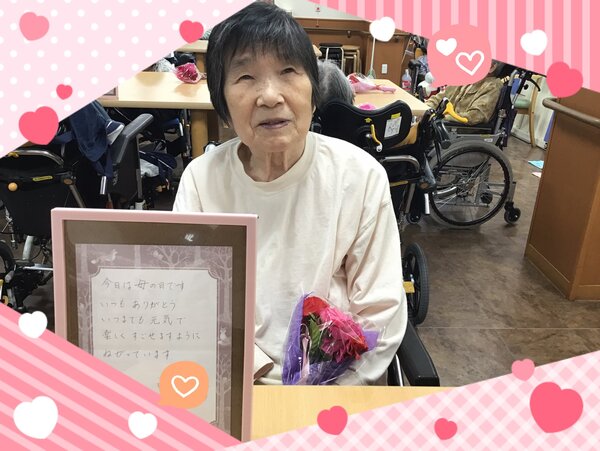 今日は 母の日です
いつも ありがとう
いつまでも 元気で
楽しく すごせますように
ねがっています